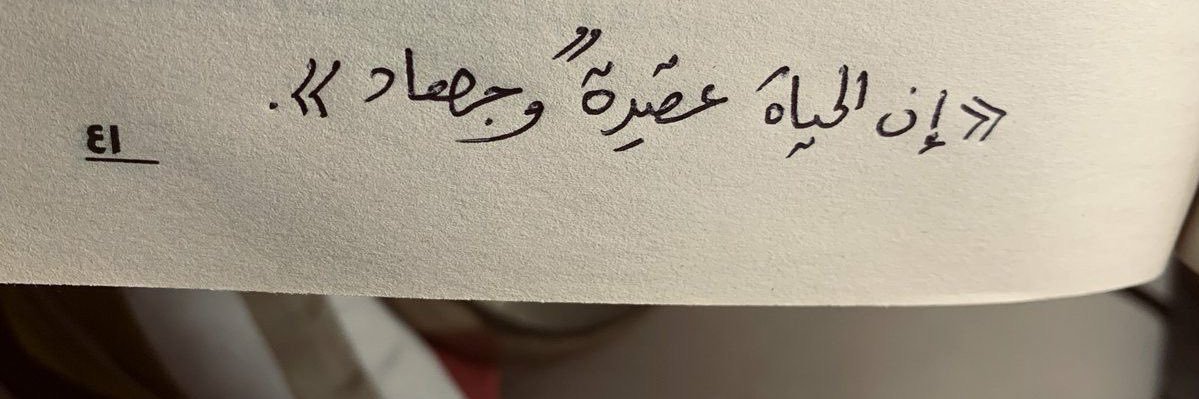 «إن الحياةَ عقيدةٌ وجهاد».
٤١